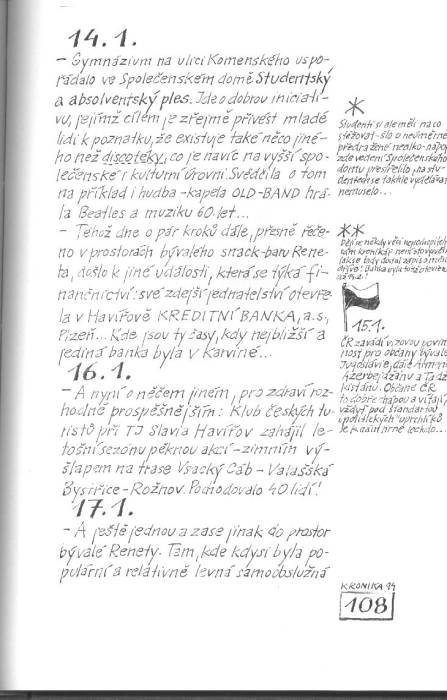 14.1.
- Gymnázium na ulici Komenského uspo-
řádalo ve Společenském domě Studentský
a absolventský ples. Jde o dobrou iniciati-
vu, jejímž cílem je zřejmě přivést mladé
lidi k poznatku, že existuje také něco jiné-
ho než discotéky, co je navíc na vyšší spo-
lečenské i kulturní úrovni. Svědčila o tom
na příklad i hudba - kapela OLD-BAND hrá-
la Beatles a muziku 60. let...
- Téhož dne o pár kroků dále, přesně řeče-
no v prostorách bývalého snack-baru Rene-
ta, došlo k jiné události, která se týká fi-
nančnictví: své zdejší jednatelství otevře-
la v Havířově KREDITNÍ BANKA, a.s.,
Plzeň... Kde jsou ty časy, kdy nejbližší a
jediná banka byla v Karviné...
16.1.
- A nyní o něčem jiném, pro zdraví roz-
hodně prospěšnějším: Klub českých tu-
ristů při TJ Slavia Havířov zahájil le-
tošní sezónu pěknou akcí - zimním vý-
šlapem na trase Vsacký Cáb - Valašská
Bystřice - Rožnov. Pochodovalo 40 lidí!
17.1.
- A ještě jednou a zase jinak do prostor
bývalé Renety. Tam, kde kdysi byla po-
pulární a relativně levná samoobslužná
*
Studenti si ale měli na co
stěžovat - šlo o neúměrně
předražené nealko-nápoje
zde vedení Společenského
domu přestřelilo, na stu-
dentech se takhle vydělávat
nemuselo...
**
Dějí se někdy věci nepochopitel
tam kronikář není
však
dříve! Banka byla totiž otevřena
až
15.1.
ČR zavádí vízovou povin
nost pro občany bývalé
Jugoslávie, dále Arménie
Azerbejdžánu a Tadži
kistánu. Občané ČR
to dobře chápou a vítají,
vždyť pod štandartou
"politických" uprchlíků
se k nám hrne leckdo...
KRONIKA 94
108